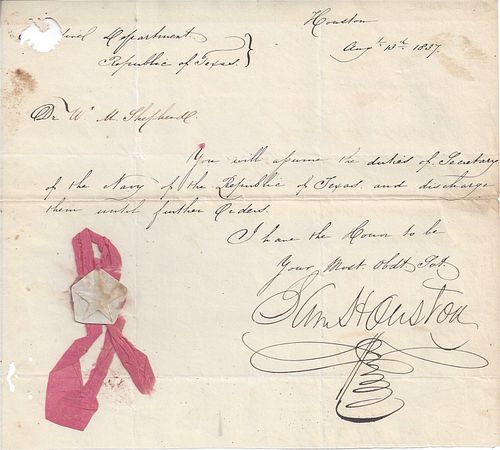 Houston
Department
Augt 13th 1837.
Republic of Texas.
Dr Wm M Shepherd.
You will assume the duties of Secretary
of the Navy of the Republic of Texas and discharge
them until further Orders.
I have the Honor to be
Your Most Obdt. Svt.
Sam Houston